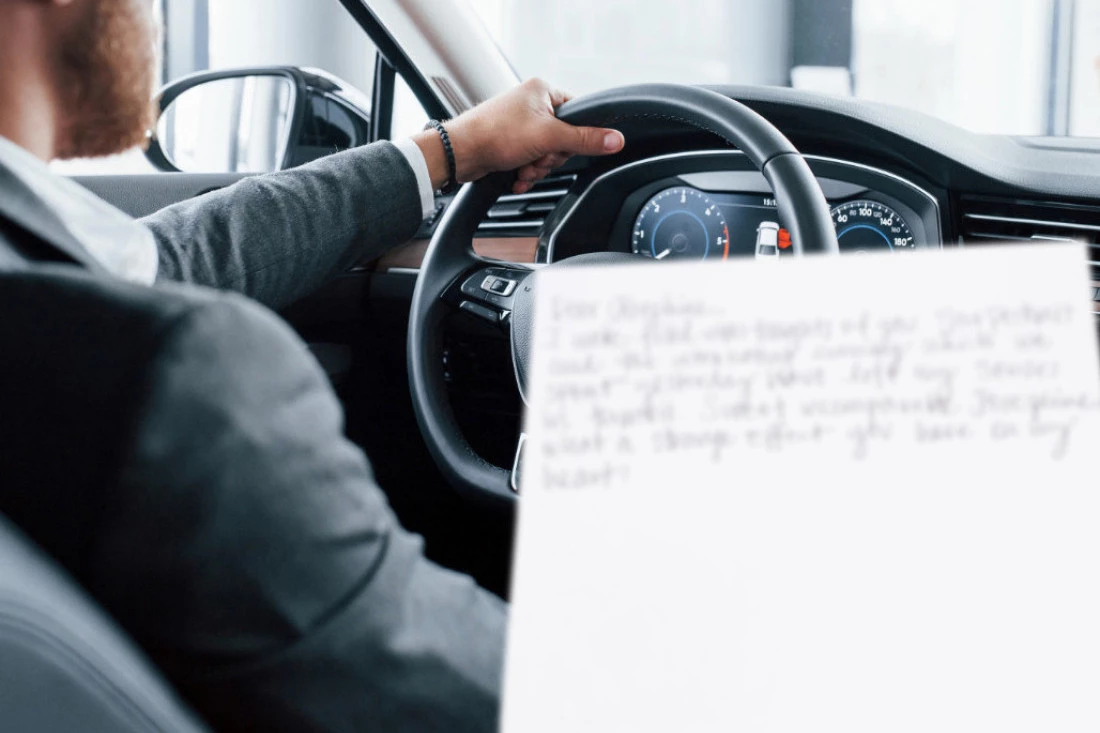 Dear Josephine,
I wake filled with thoughts of you. Your portrait
and the evening which we
spent yesterday have left my senses
in Sweet incomparable Josephine
what a strange effect you have on my
heart!
3
5
60
100
140
180